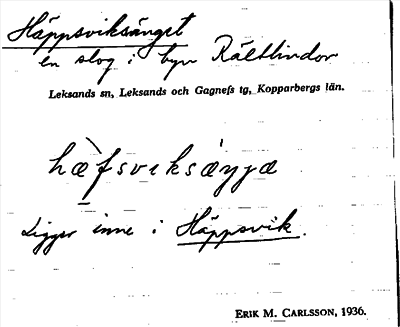 Häppsviksänget
en slog i byn Rältlindor
Leksands sn, Leksands och Gagnefs tg, Kopparbergs län.
hæ̀fsviksáŋgæ
Ligger inne i Häppsvik.
ERIK M. CARLSSON, 1936.